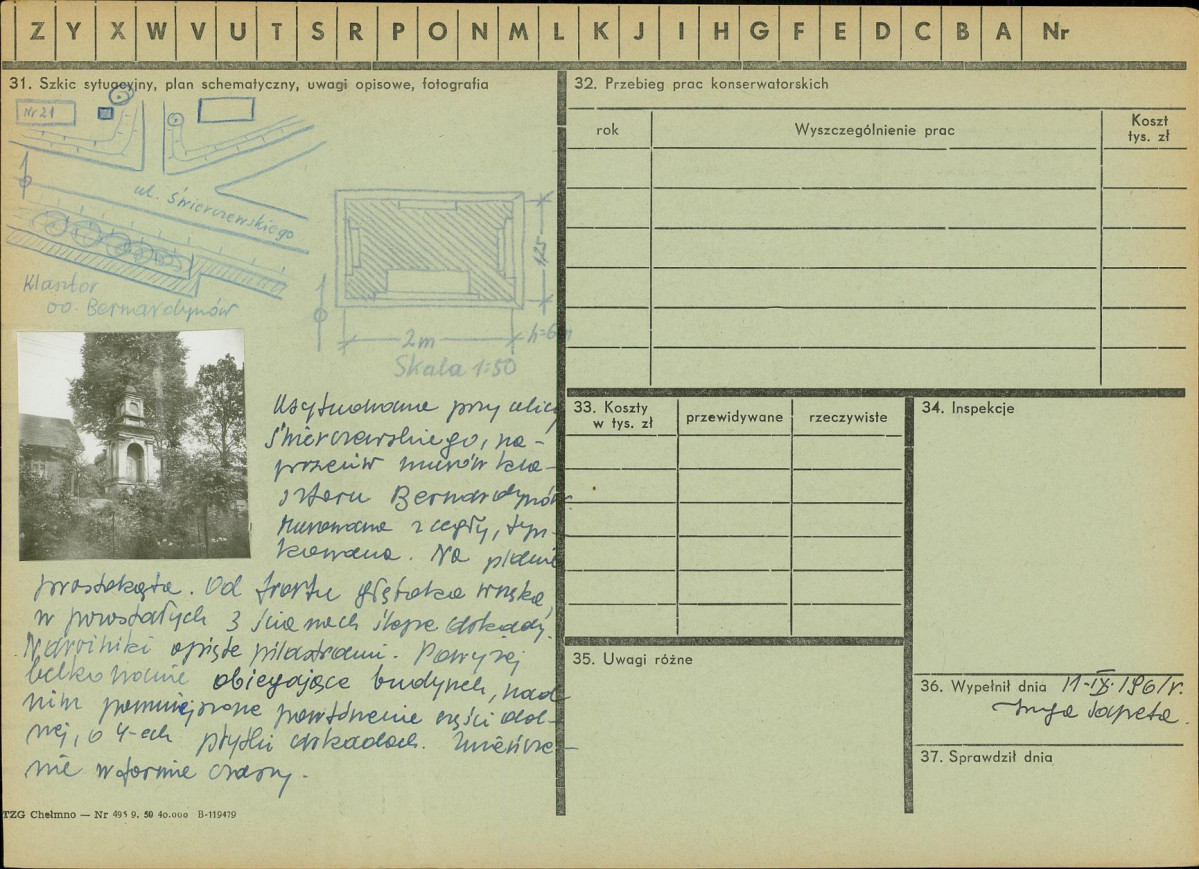 Z Y X W V U T S R P O N M L K J I H G F E D C B A Nr
31. Szkic sytuacyjny, plan schematyczny, uwagi opisowe, fotografia
Nr 21
ul. Świerczewskiego
Klasztor
oo. Bernardynów
2m
h=6m
Skala 1:50
Usytuowana przy ulicy
Świerczewskiego, na-
przeciw murów kla-
sztoru Bernardynów
Murowana z cegły, tyn-
kowana. Na planie
prostokąta. Od frontu głęboka wnęka,
w pozostałych 3 ścianach ślepe arkady.
Narożniki opięte pilastrami. Powyżej
belkowanie obiegające budynek, nad
nim pomniejszone powtórzenie części dol-
nej, o 4-ech płytkich arkadach. Zwieńcze-
nie w formie czaszy.
TZG Chełmno — Nr 495 9. 50 40.000 B-119479
32. Przebieg prac konserwatorskich
rok
Wyszczególnienie prac
Koszt
tys. zł
33. Koszty
w tys. zł
przewidywane
rzeczywiste
34. Inspekcje
35. Uwagi różne
36. Wypełnił dnia 11-IX-1961r.
Sapeta
37. Sprawdził dnia